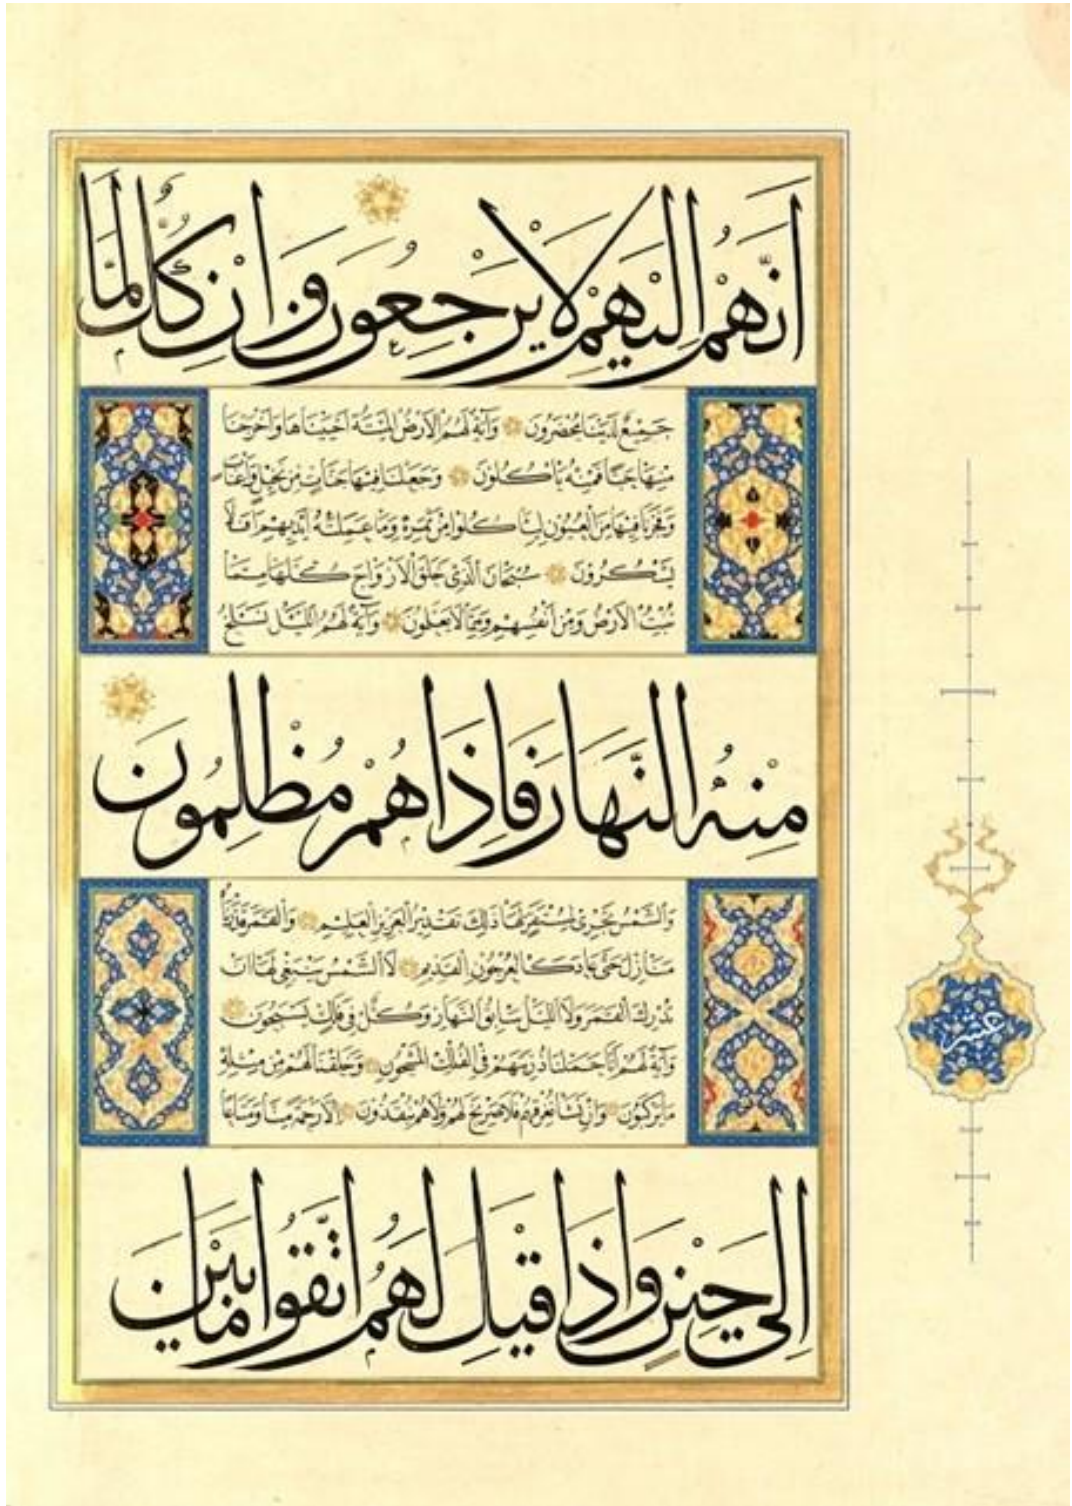 اَنَّهُمْ اِلَيْهِمْ لَا يَرْجِعُونَ وَاِنْ كُلٌّ لَمَّا
جَمِيعٌ لَدَيْنَا مُحْضَرُونَ وَآيَةٌ لَهُمُ الْاَرْضُ الْمَيْتَةُ اَحْيَيْنَاهَا وَاَخْرَجْنَا
مِنْهَا حَبًّا فَمِنْهُ يَأْكُلُونَ وَجَعَلْنَا فِيهَا جَنَّاتٍ مِنْ نَخِيلٍ وَاَعْنَابٍ
وَفَجَّرْنَا فِيهَا مِنَ الْعُيُونِ لِيَأْكُلُوا مِنْ ثَمَرِهِ وَمَا عَمِلَتْهُ اَيْدِيهِمْ اَفَلَا
يَشْكُرُونَ سُبْحَانَ الَّذِي خَلَقَ الْاَزْوَاجَ كُلَّهَا مِمَّا
تُنْبِتُ الْاَرْضُ وَمِنْ اَنْفُسِهِمْ وَمِمَّا لَا يَعْلَمُونَ وَآيَةٌ لَهُمُ اللَّيْلُ نَسْلَخُ
مِنْهُ النَّهَارَ فَاِذَا هُمْ مُظْلِمُونَ
وَالشَّمْسُ تَجْرِي لِمُسْتَقَرٍّ لَهَا ذَلِكَ تَقْدِيرُ الْعَزِيزِ الْعَلِيمِ وَالْقَمَرَ قَدَّرْنَاهُ
مَنَازِلَ حَتَّى عَادَ كَالْعُرْجُونِ الْقَدِيمِ لَا الشَّمْسُ يَنْبَغِي لَهَا اَنْ
تُدْرِكَ الْقَمَرَ وَلَا اللَّيْلُ سَابِقُ النَّهَارِ وَكُلٌّ فِي فَلَكٍ يَسْبَحُونَ
وَآيَةٌ لَهُمْ اَنَّا حَمَلْنَا ذُرِّيَّتَهُمْ فِي الْفُلْكِ الْمَشْحُونِ وَخَلَقْنَا لَهُمْ مِنْ مِثْلِهِ
مَا يَرْكَبُونَ وَاِنْ نَشَأْ نُغْرِقْهُمْ فَلَا صَرِيخَ لَهُمْ وَلَا هُمْ يُنْقَذُونَ اِلَّا رَحْمَةً مِنَّا وَمَتَاعًا
اِلَى حِينٍ وَاِذَا قِيلَ لَهُمُ اتَّقُوا مَا بَيْنَ
عشر